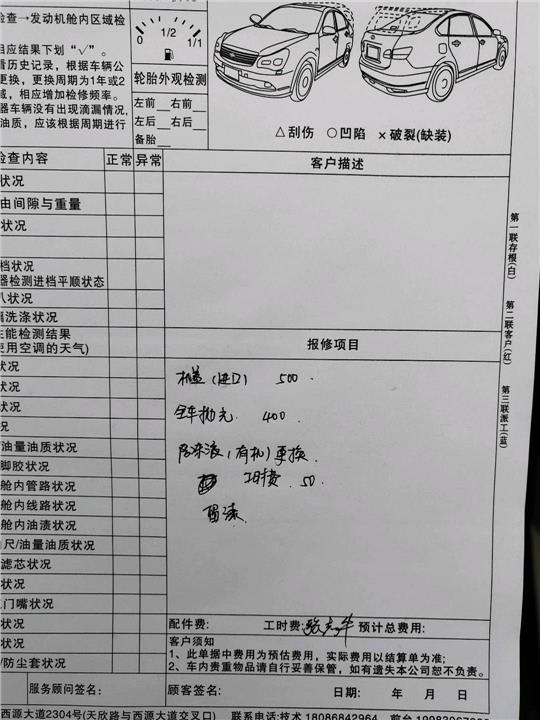 检查→发动机舱内区域检
相应结果下划“√”。
看历史记录，根据车辆公
更换，更换周期为1年或2
域，相应增加检修频率。
器车辆没有出现滴漏情况，
油质，应该根据周期进行
0 1/2 1/1
轮胎外观检测
左前 右前
左后 右后
备胎
△刮伤 ○凹陷 ×破裂(缺装)
检查内容 正常 异常 客户描述
状况
由间隙与重量
状况
档状况
器检测进档平顺状态
八状况
洗涤状况
性能检测结果
使用空调的天气)
报修项目
状况
状况
状况
况
/油量油质状况
脚胶状况
舱内管路状况
舱内线路状况
舱内油渍状况
尺/油量油质状况
滤芯状况
状况
门嘴状况
状况
状况
/防尘套状况
机盖(进口) 500.
全车抛光 400
防冻液(有机)更换
工时费 50.
留漆
配件费: 工时费: 预计总费用:
客户须知
1、此单据中费用为预估费用，实际费用以结算单为准;
2、车内贵重物品请自行妥善保管，如有遗失本公司恕不负责。
服务顾问签名: 顾客签名: 日期: 年 月 日
西源大道2304号(天欣路与西源大道交叉口) 联系电话:技术 18086842964
第一联存根(白)
第二联客户(红)
第三联派工(蓝)